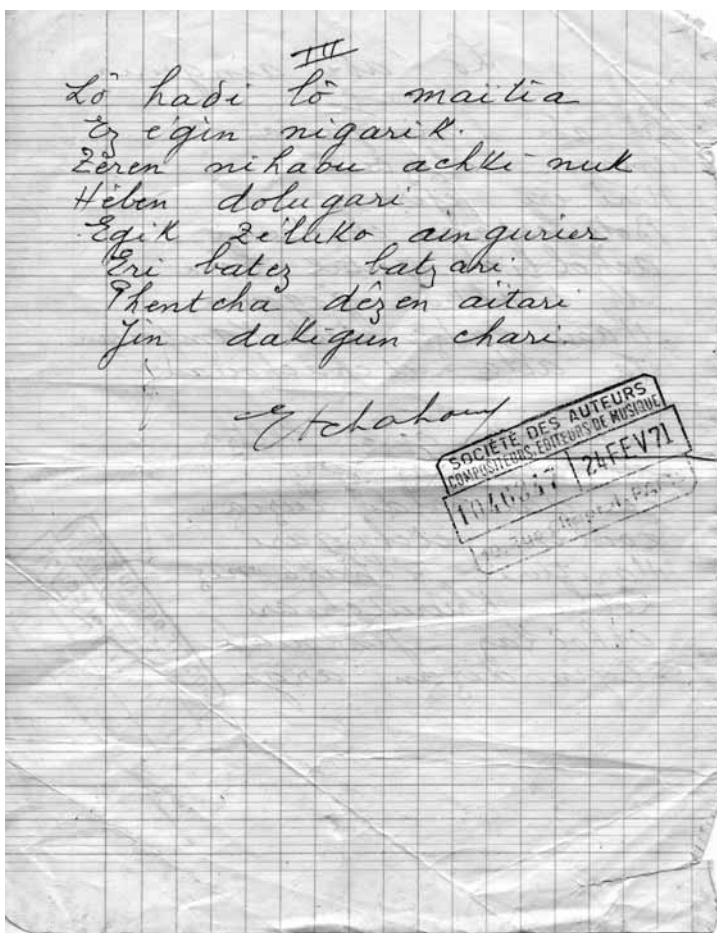 III
Lô hadi lô maitia
Ez égin nigarik.
Zéren nihaou achki nuk
Hében dolugari
Egik zéluko ainguier
Eri batez batzari
Phentcha dézen aitari
Jin dakigun chari.
Etchahoun
SOCIÉTÉ DES AUTEURS
COMPOSITEURS, EDITEURS DE MUSIQUE
24 FEV 71